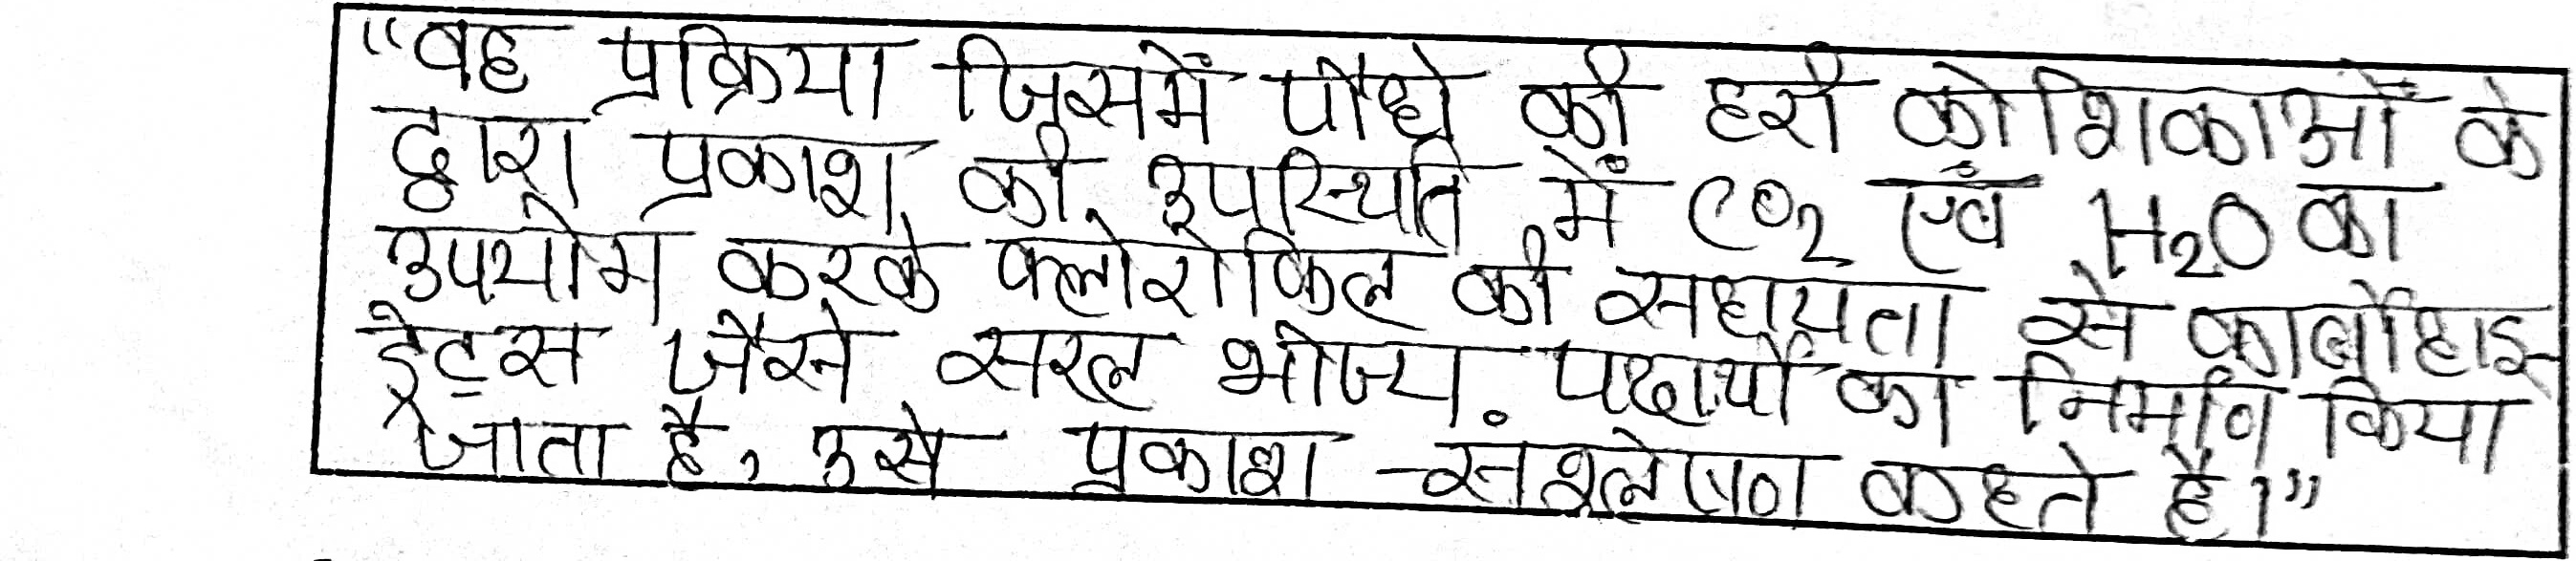 "वह प्रक्रिया जिसमें पौधे की हरी कोशिकाओं के
द्वारा प्रकाश की उपस्थिति में CO₂ एवं H₂O का
उपयोग करके क्लोरोफिल की सहायता से कार्बोहाइ-
ड्रेट्स जैसे सरल भोज्य पदार्थों का निर्माण किया
जाता है, उसे प्रकाश-संश्लेषण कहते है।"